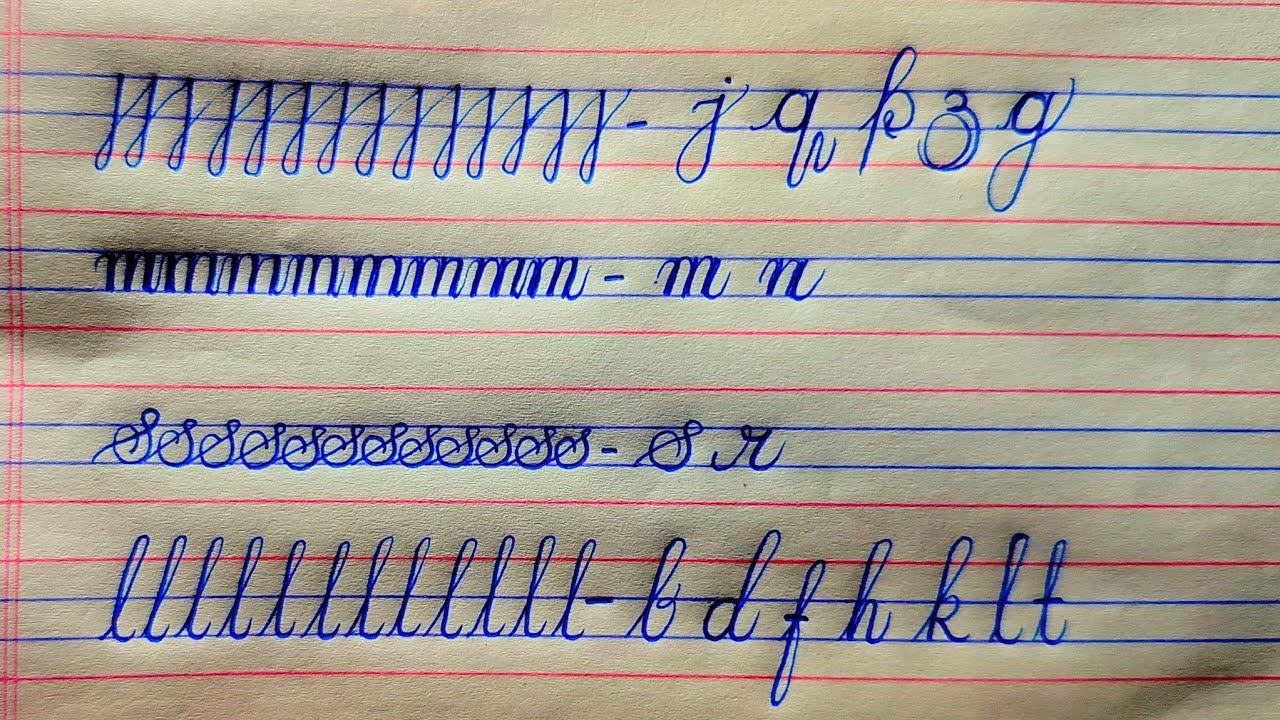 jjjjjjjjjjjjjj - j q p z g
mmmmmmmm - m n
sssssssssss - s r
llllllllllllll - b d f h k l t